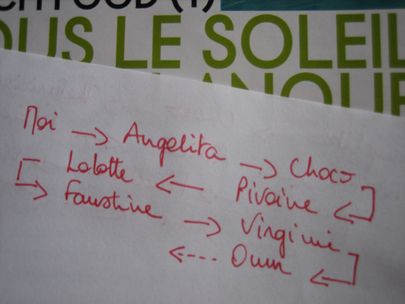 OUS LE SOLEIL
Moi → Angelita → Choco
Lolotte ← Pivoine
Faustine → Virginie